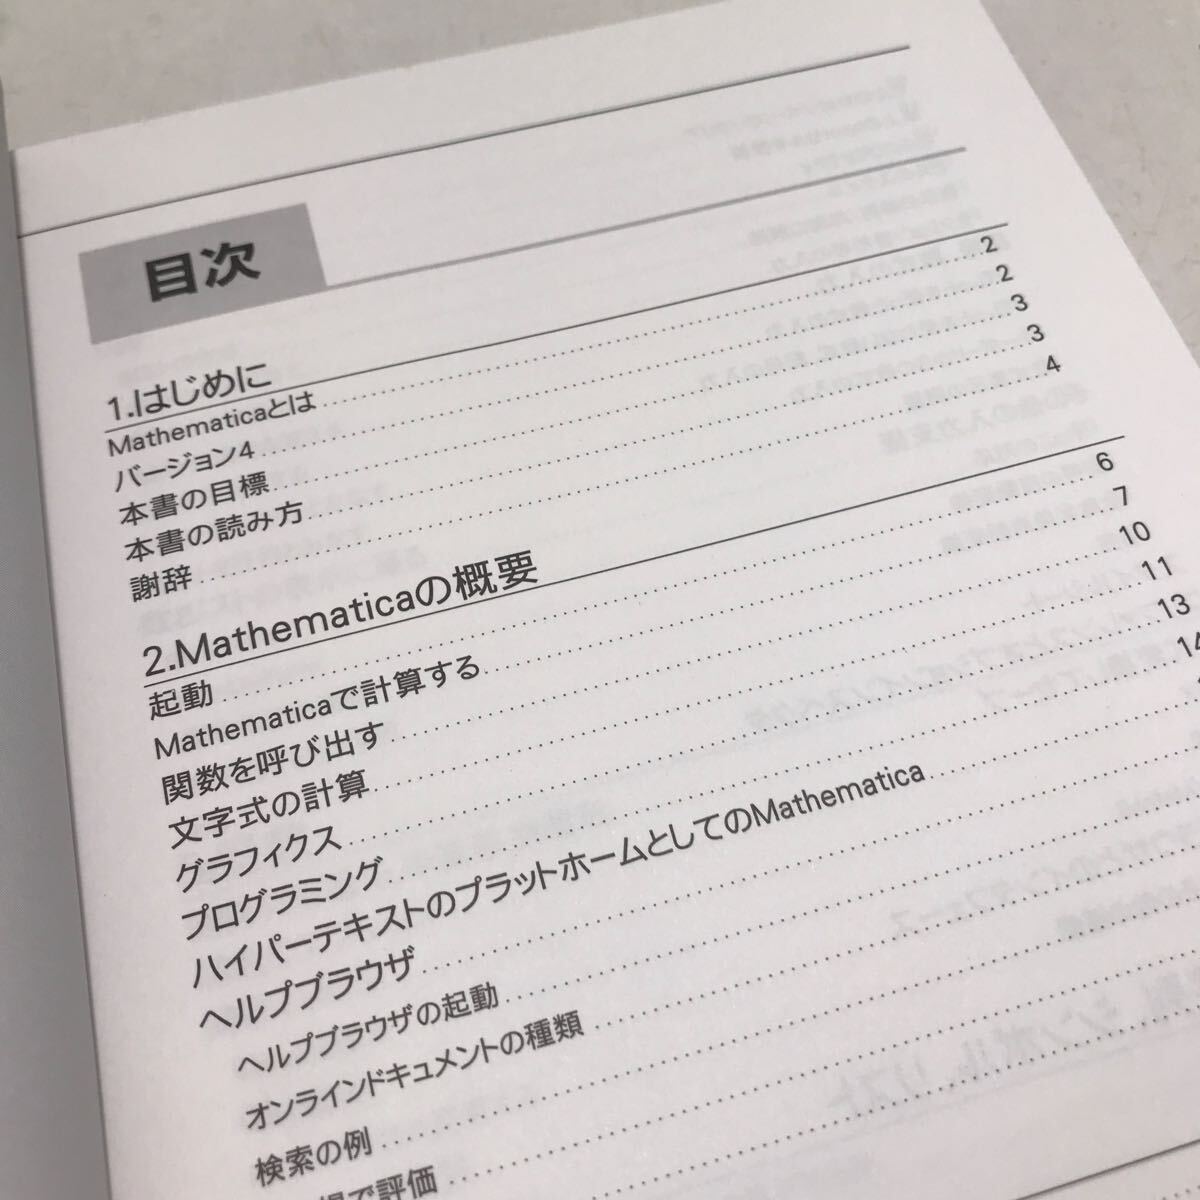 目次
1.はじめに
Mathematicaとは 2
バージョン4 2
本書の目標 3
本書の読み方 3
謝辞 4
2.Mathematicaの概要
起動 6
Mathematicaで計算する 7
関数を呼び出す 10
文字式の計算 11
グラフィクス 13
プログラミング 14
ハイパーテキストのプラットホームとしてのMathematica
ヘルプブラウザ
ヘルプブラウザの起動
オンラインドキュメントの種類
検索の例
場で評価